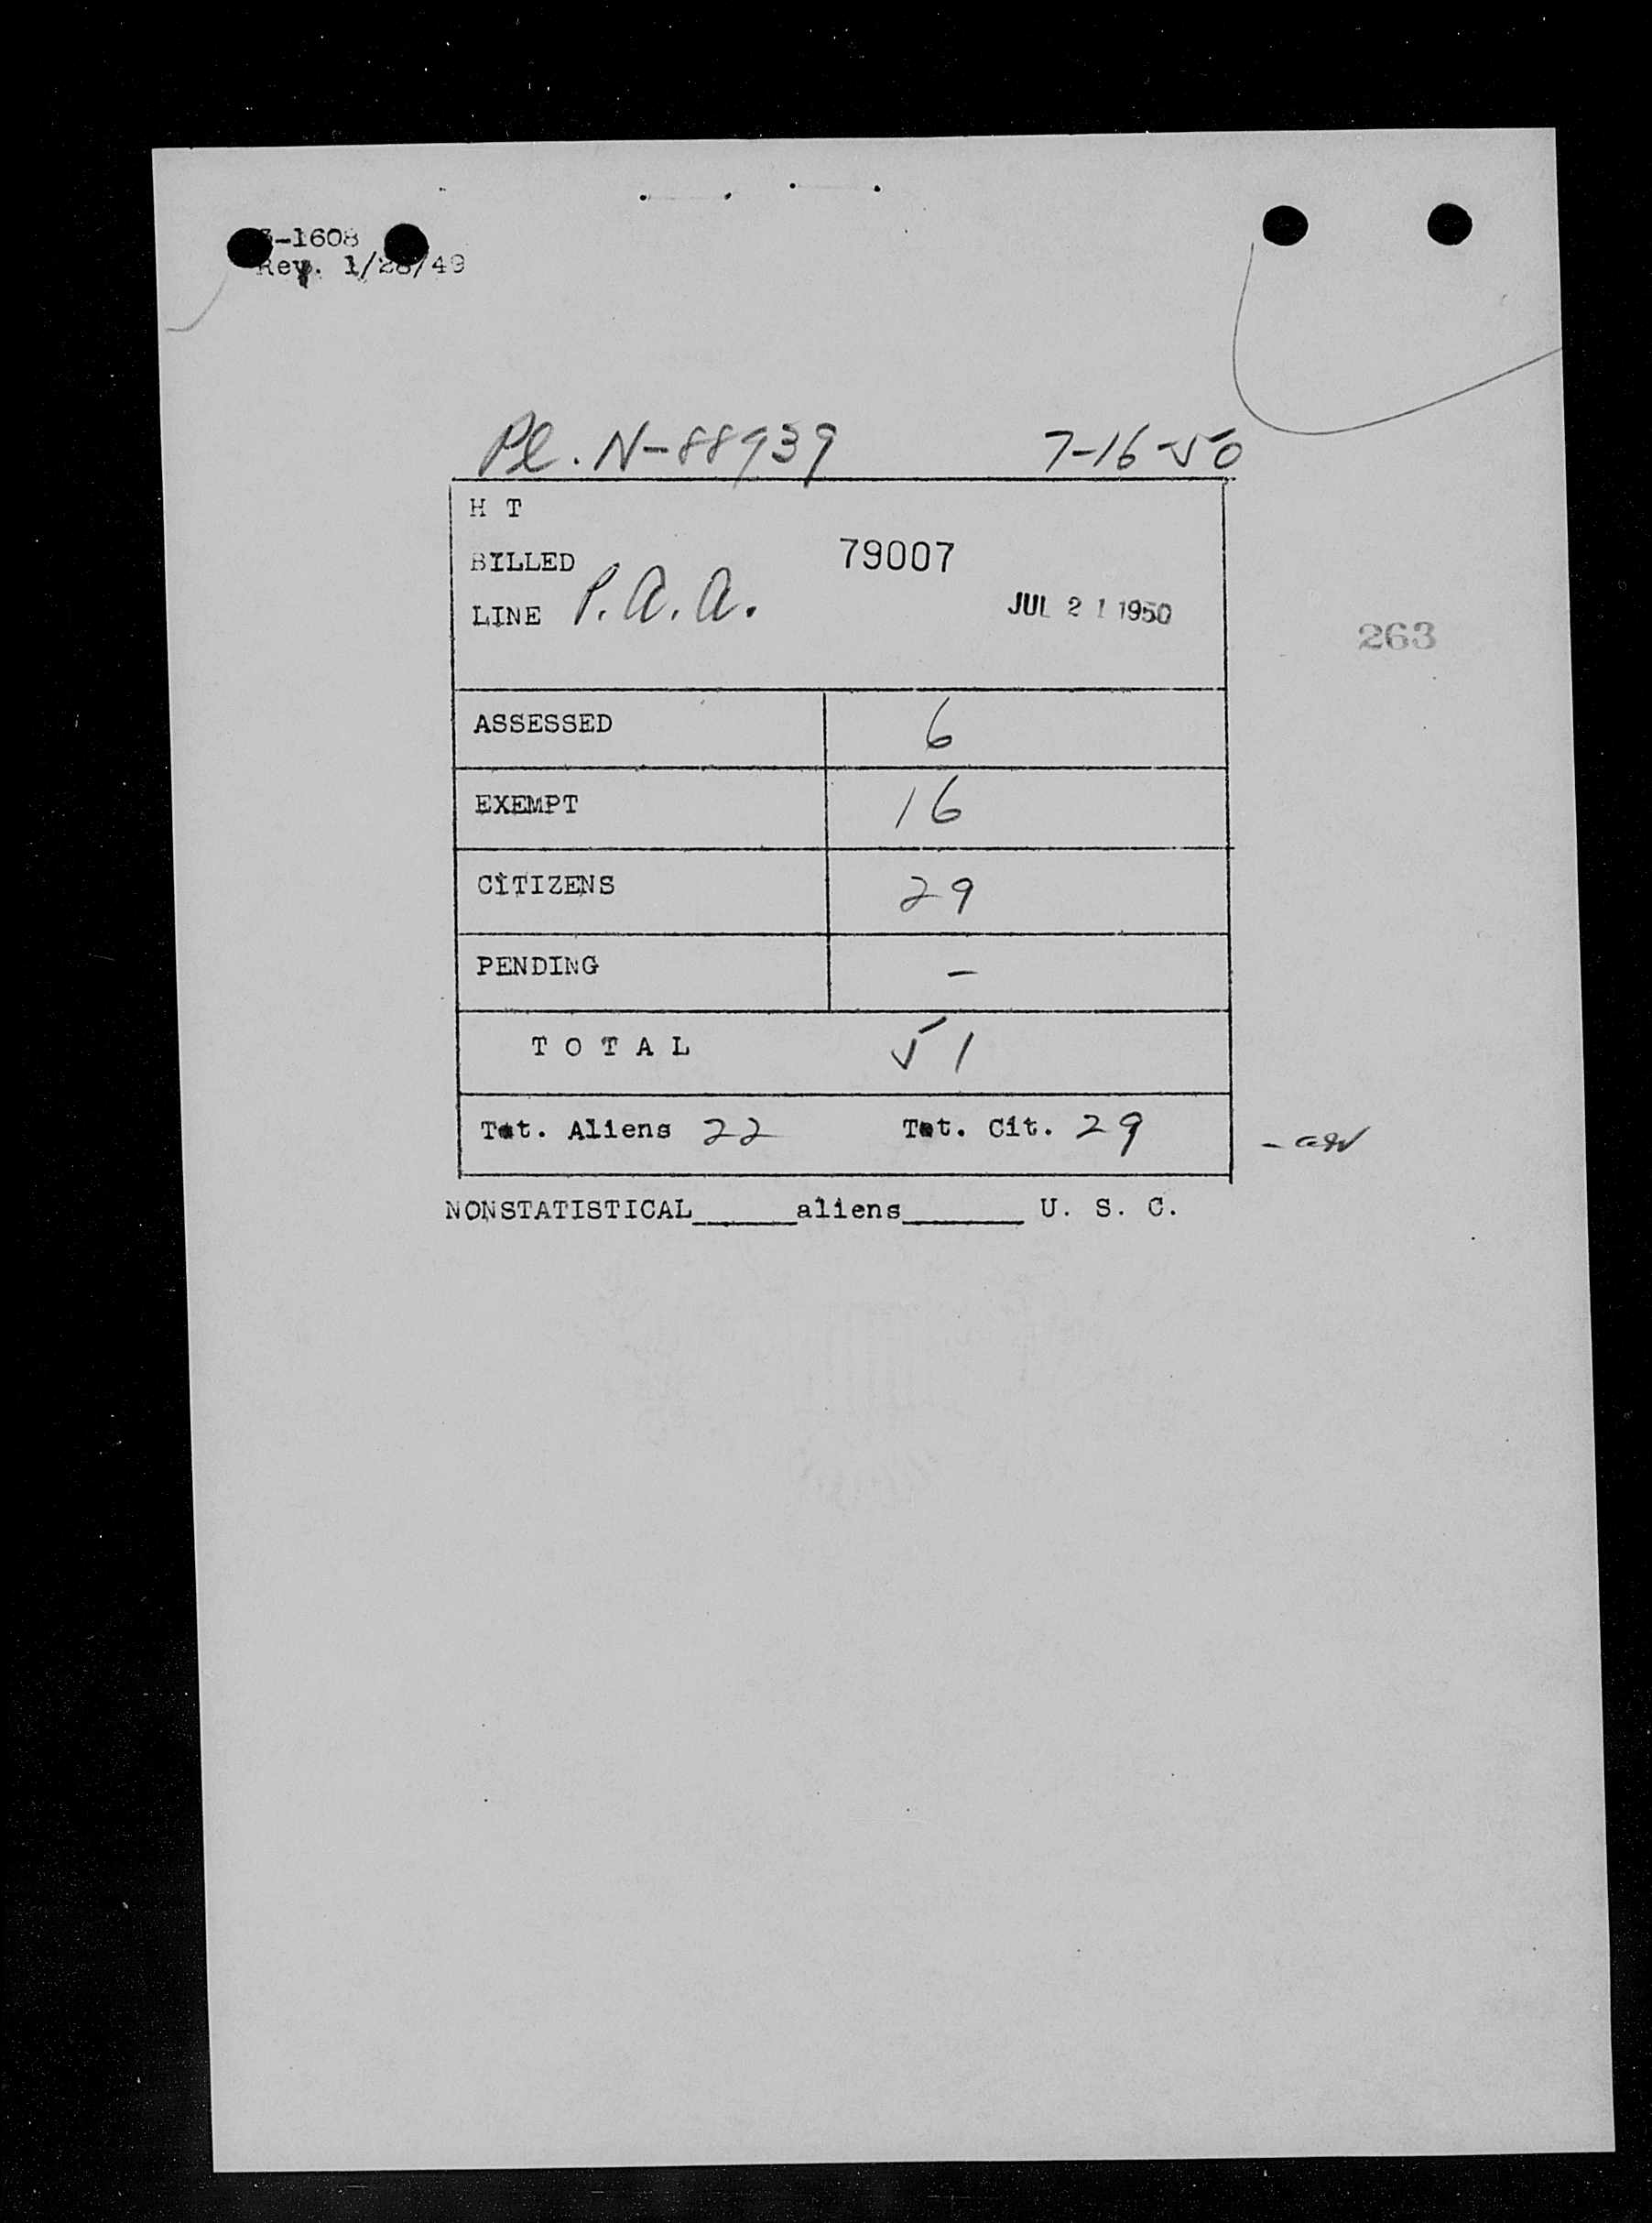 -1608
Rev. 1/28/49
Pl. N-88939 7-16-50
H T
BILLED 79007
LINE P.A.A. JUL 21 1950
263
ASSESSED 6
EXEMPT 16
CITIZENS 29
PENDING -
TOTAL 51
Tot. Aliens 22 Tot. Cit. 29
NONSTATISTICAL______aliens_______ U. S. C.